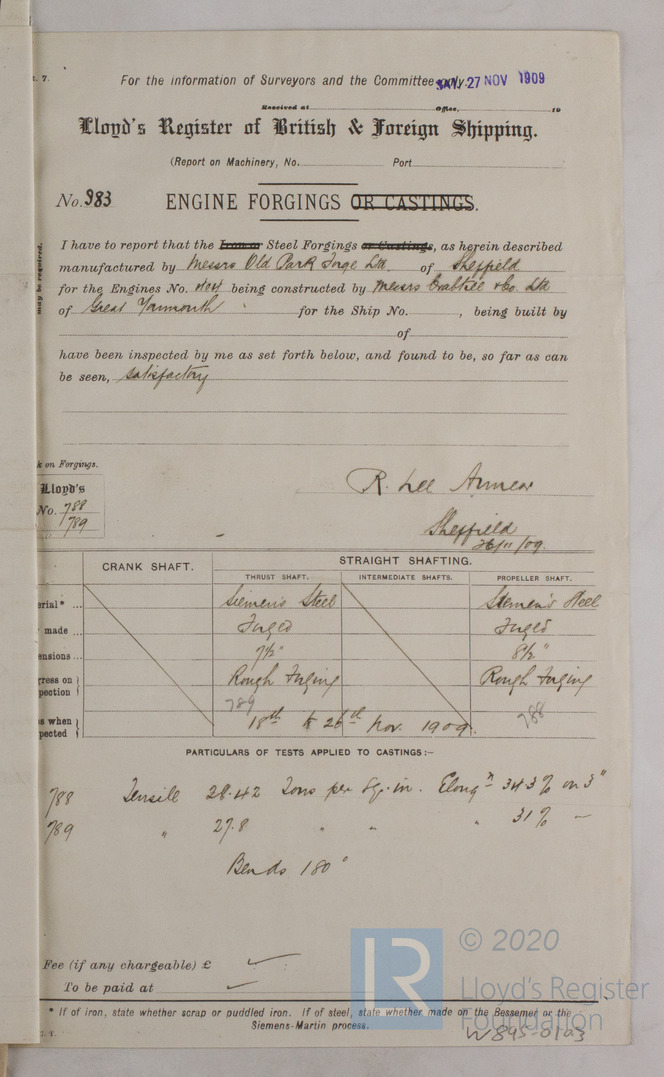 For the information of Surveyors and the Committee only.
SAT. 27 NOV 1909
Received at Office, 19
Lloyd's Register of British & Foreign Shipping.
(Report on Machinery, No. Port
No. 983 ENGINE FORGINGS OR CASTINGS.
may be required.
I have to report that the Iron or Steel Forgings or Castings, as herein described
manufactured by Messrs Old Park Forge Ltd of Sheffield
for the Engines No. 404 being constructed by Messrs Crabtree & Co. Ltd
of Great Yarmouth for the Ship No. , being built by
of
have been inspected by me as set forth below, and found to be, so far as can
be seen, satisfactory
k on Forgings.
Lloyd's
No. 788
789
R. Lee Annear
Sheffield
26/11/09.
CRANK SHAFT. STRAIGHT SHAFTING.
THRUST SHAFT. INTERMEDIATE SHAFTS. PROPELLER SHAFT.
erial* ... Siemens Steel Siemens Steel
made ... Forged Forged
ensions ... 7½" 8½"
gress on Rough Forging Rough Forging
pection
789 788
s when 18th to 26th Nov. 1909.
pected
PARTICULARS OF TESTS APPLIED TO CASTINGS:—
788 Tensile 28.42 Tons per sq. in. Elongn 34.3% on 3"
789 " 27.8 " " " 31% ~
Bends 180°
Fee (if any chargeable) £ :
To be paid at
* If of iron, state whether scrap or puddled iron. If of steel, state whether made on the Bessemer or the
Siemens-Martin process.
© 2020
LR
Lloyd's Register
Foundation
W895-0123